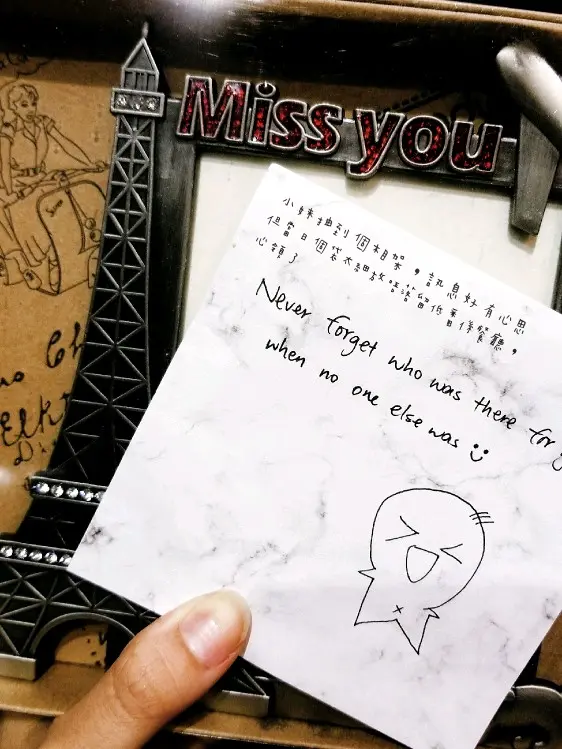 Miss you
小妹抽到個相架，訊息好有心思
但當日個袋太細故唔該留低番係餐廳，
心領了
Never forget who was there for
when no one else was